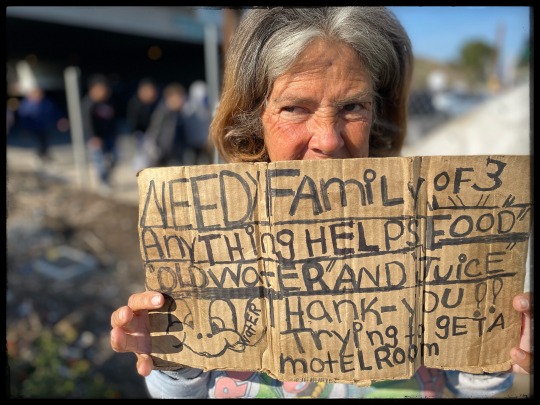 NEEDY FAMiLy OF 3
ANyTHing HELPS "FOOD"
"COLD WOTER" AND "JuiCE"
THANK-yOU !!
WOTER
Trying to gETA
motEL RooM